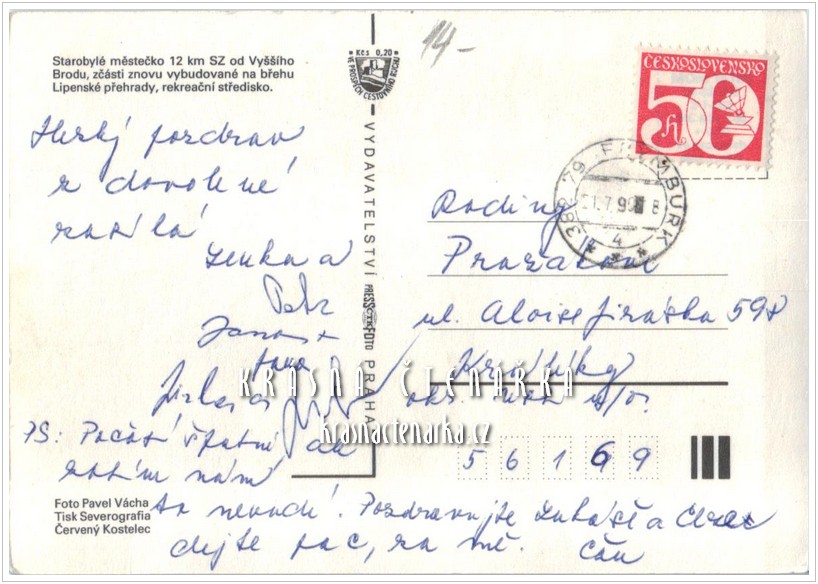 Starobylé městečko 12 km SZ od Vyššího
Brodu, zčásti znovu vybudované na břehu
Lipenské přehrady, rekreační středisko.
Hezký pozdrav
z dovolené
zasílá
Lenka a
Petr
Jirka a
PS: Počasí špatné, ale
zatím nám
to nevadí. Pozdravujte Lukáše a
dejte pac, za mě.
Foto Pavel Vácha
Tisk Severografia
Červený Kostelec
Kčs 0,20
VE PROSPĚCH CESTOVNÍHO RUCHU
VYDAVATELSTVÍ PRESSFOTO PRAHA
14-
ČESKOSLOVENSKO
50 h
382 79 FRYMBURK
4
Rodina
Pražákovi
ul. Aloise Jiráska 598
Králíky
okr. Ústí n/O.
5 6 1 6 9
KRÁSNÁ ČTENÁŘKA
krasnactenarka.cz